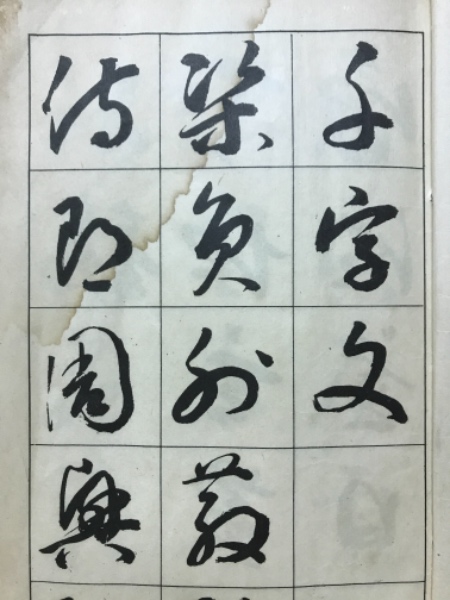 千字文
梁員外散
侍郎周興